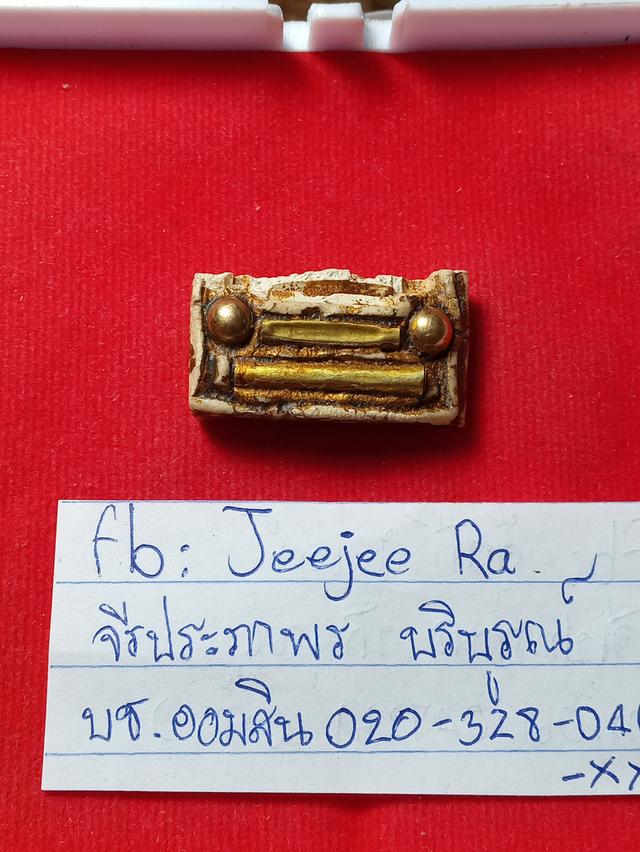 fb: Jeejee Ra.
จีรประภาพร บริบูรณ์
บช. ออมสิน 020-328-04
-xx